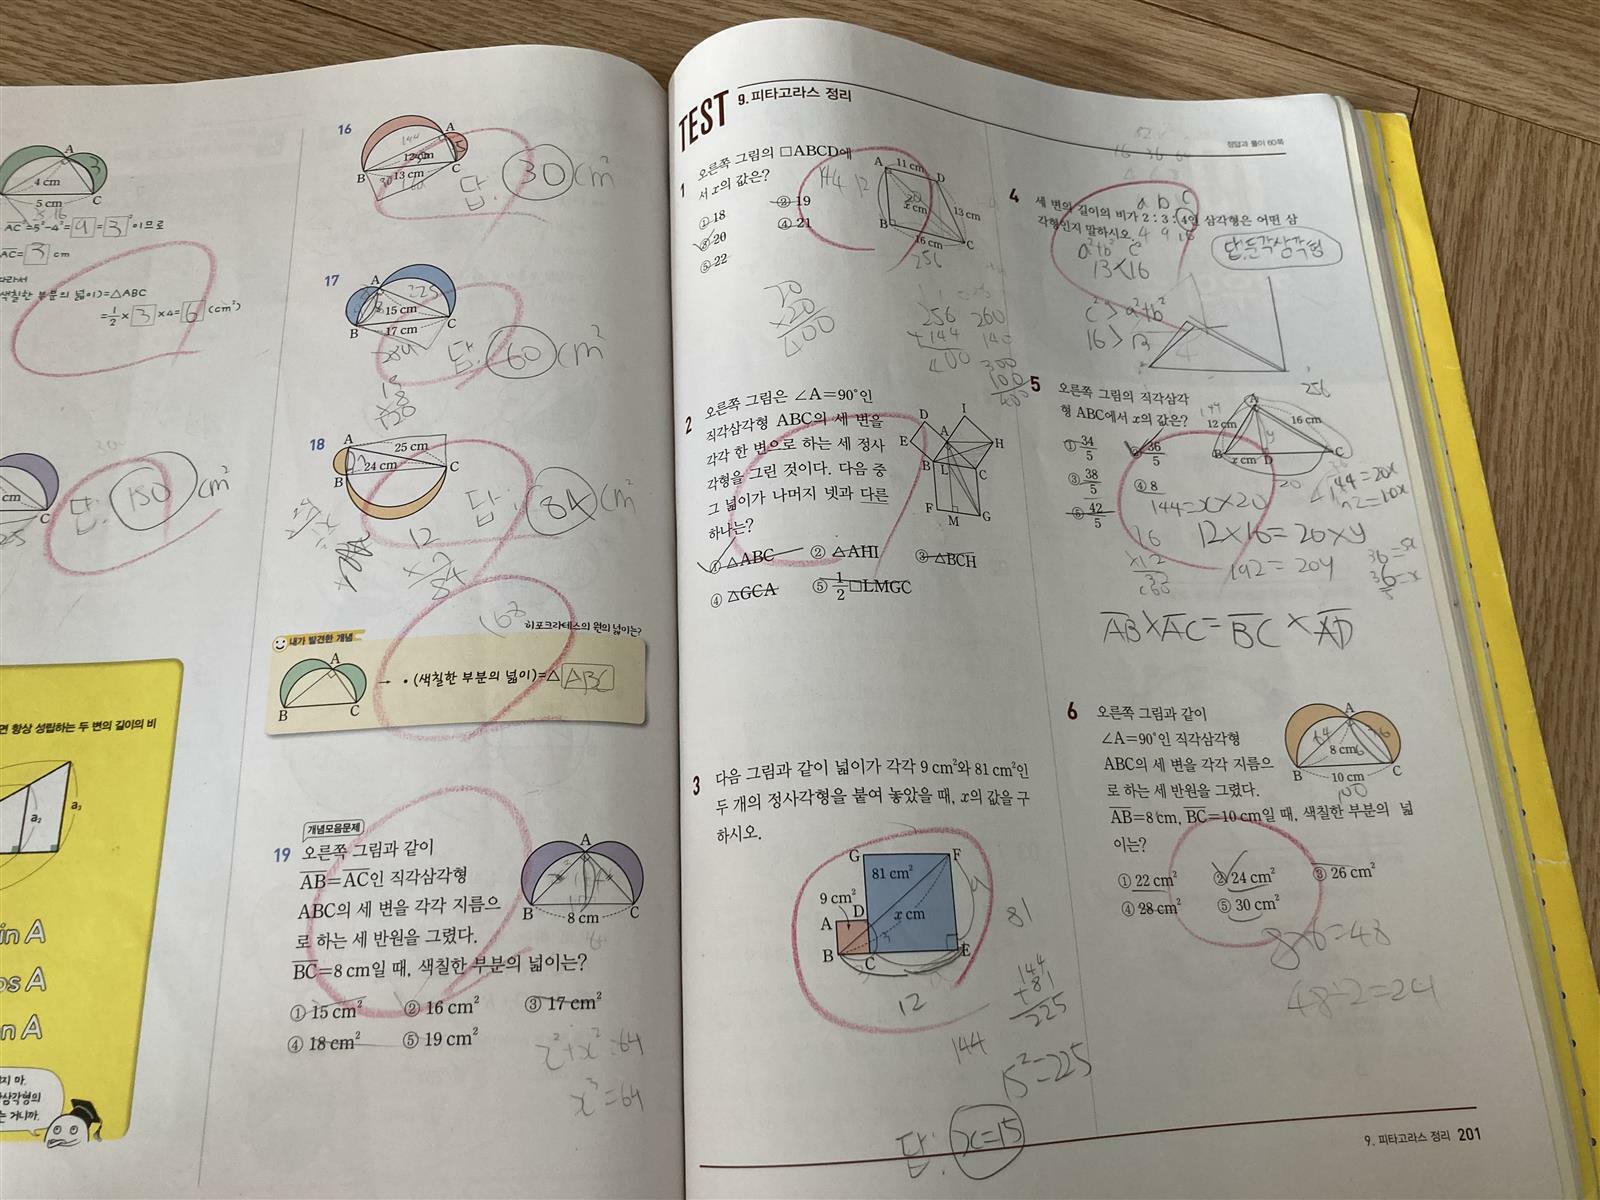 A
3
4 cm
5 cm
C
AC²=5²-4²=9=3²이므로
AC=3 cm
따라서
색칠한 부분의 넓이)=△ABC
=1/2×3×4=6(cm²)
cm
C
답: 150 cm²
면 항상 성립하는 두 변의 길이의 비
a₂
a₃
in A
os A
n A
16
A
144
12 cm
13 cm
B
C
답: 30 cm²
17
A
225
15 cm
17 cm
B
C
답: 60 cm²
18
A
25 cm
24 cm
B
C
답: 84 cm²
12
×7
84
168
히포크라테스의 원의 넓이는?
내가 발견한 개념
A
B
C
→ • (색칠한 부분의 넓이)=△ABC
개념모음문제
19 오른쪽 그림과 같이
AB=AC인 직각삼각형
ABC의 세 변을 각각 지름으
로 하는 세 반원을 그렸다.
BC=8 cm일 때, 색칠한 부분의 넓이는?
A
B
8 cm
C
64
① 15 cm² ② 16 cm² ③ 17 cm²
④ 18 cm² ⑤ 19 cm²
x²+x²=64
x²=64
TEST 9. 피타고라스 정리
정답과 풀이 60쪽
1 오른쪽 그림의 □ABCD에
서 x의 값은?
① 18 ② 19
③ 20 ④ 21
⑤ 22
144 12
A 11 cm D
x cm
13 cm
B
16 cm
C
256
20
×20
400
256
+144
400
260
140
300
100
400
2 오른쪽 그림은 ∠A=90°인
직각삼각형 ABC의 세 변을
각각 한 변으로 하는 세 정사
각형을 그린 것이다. 다음 중
그 넓이가 나머지 넷과 다른
하나는?
D
I
E
A
H
B
L
C
F
M
G
① △ABC ② △AHI ③ △BCH
④ △GCA ⑤ 1/2□LMGC
3 다음 그림과 같이 넓이가 각각 9 cm²와 81 cm²인
두 개의 정사각형을 붙여 놓았을 때, x의 값을 구
하시오.
G
F
81 cm²
9 cm²
A D
x cm
B
C
E
3
9
12
81
144
+81
225
144
15²=225
답: x=15
4 세 변의 길이의 비가 2 : 3 : 4인 삼각형은 어떤 삼
각형인지 말하시오.
a b c
4 9 16
a²+b² c²
13<16
답:둔각삼각형
c²>a²+b²
16>13
5 오른쪽 그림의 직각삼각
형 ABC에서 x의 값은?
256
144
A
12 cm
16 cm
y
B
x cm
D
C
20
① 34/5 ② 36/5
③ 38/5 ④ 8
⑤ 42/5
144=x×20
144=20x
72=10x
36=5x
16
×12
12×16=20×y
192=20y
AB×AC=BC×AD
6 오른쪽 그림과 같이
∠A=90°인 직각삼각형
ABC의 세 변을 각각 지름으
로 하는 세 반원을 그렸다.
AB=8 cm, BC=10 cm일 때, 색칠한 부분의 넓
이는?
A
64
36
8 cm
6
B
10 cm
C
100
① 22 cm² ② 24 cm² ③ 26 cm²
④ 28 cm² ⑤ 30 cm²
8×6=48
48÷2=24
9. 피타고라스 정리 201